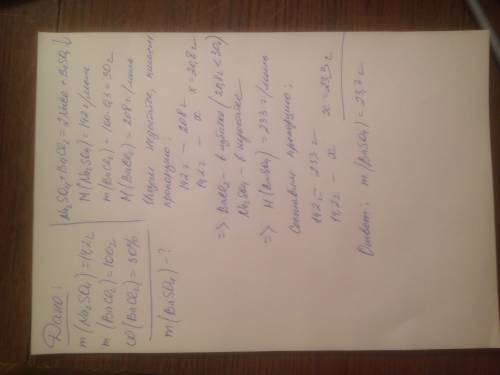 Дано:
m(Na₂SO₄) = 14,2г
m(BaCl₂) = 100г
ω(BaCl₂) = 30%
m(BaSO₄) - ?
Na₂SO₄ + BaCl₂ = 2NaCl + BaSO₄↓
M(Na₂SO₄) = 142г/моль
m(BaCl₂) = 100·0,3 = 30г
M(BaCl₂) = 208г/моль
Ищем недостаток, составим
пропорцию:
142г - 208г
14,2г - x x = 20,8г
=> BaCl₂ - в избытке (20,8 < 30)
Na₂SO₄ - в недостатке
=> M(BaSO₄) = 233 г/моль
Составим пропорцию:
142г - 233г
14,2г - x x = 23,3г
Ответ: m(BaSO₄) = 23,3г